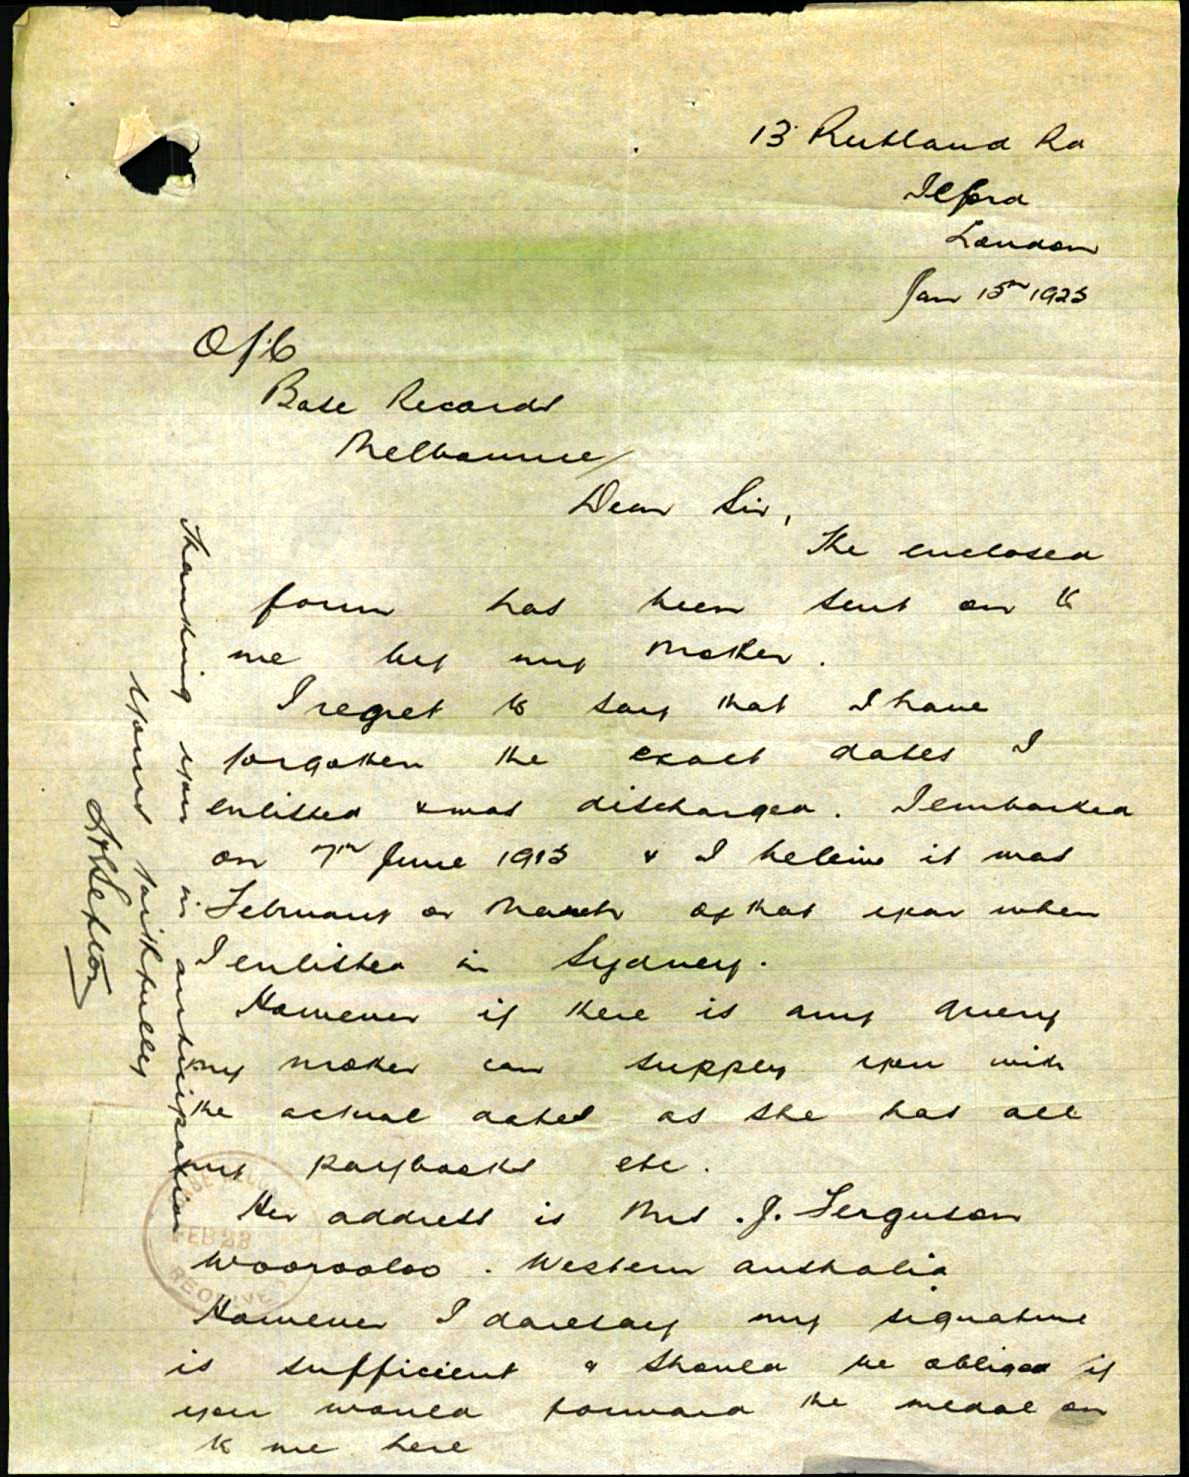 13 Rutland Rd
Ilford
London
Jan 15th 1923
O/C
Base Records
Melbourne
Dear Sir,
The enclosed
form has been sent on to
me by my Mother.
I regret to say that I have
forgotten the exact dates I
enlisted & was discharged. I embarked
on 7th June 1915 & I beleive it was
February or March of that year when
I enlisted in Sydney.
However if there is any query
my mother can supply you with
the actual dates as she has all
my paybooks etc.
Her address is Mrs. J. Ferguson
Woorooloo. Western Australia
However I daresay my signature
is sufficient & should be obliged if
you would forward the medal on
to me here
Thanking you in anticipation
Yours faithfully
Sefton
FEB 23